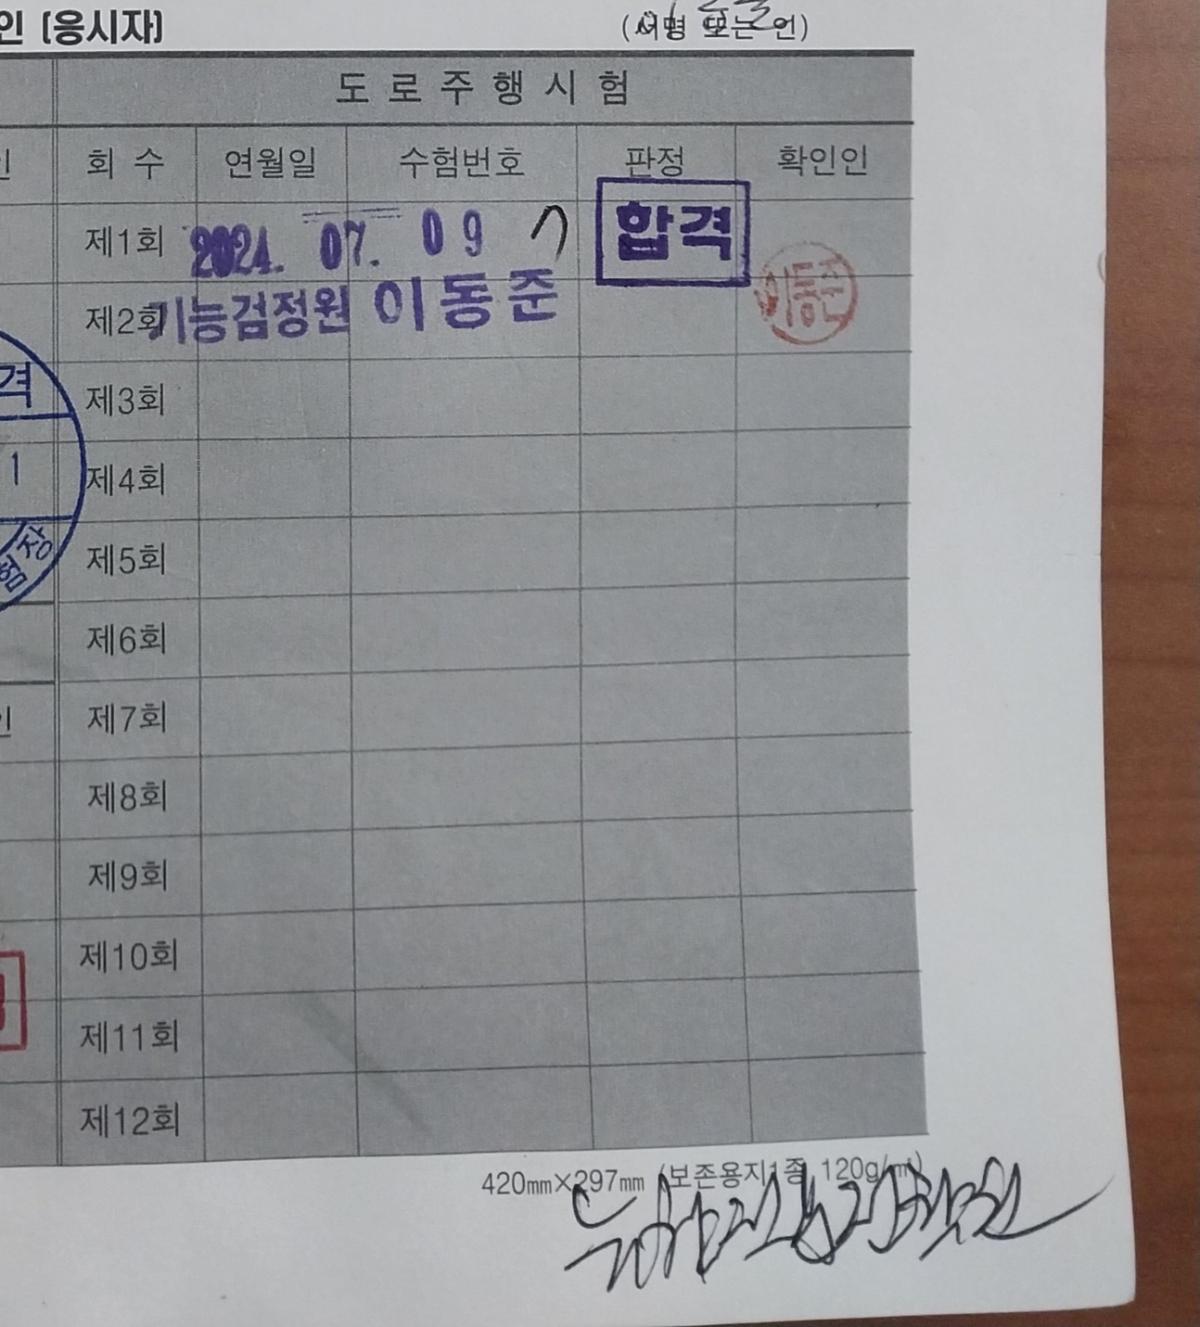 인 [응시자]
(서명 또는 인)
도로주행시험
인 회수 연월일 수험번호 판정 확인인
제1회 2024. 07. 09 7 합격
제2회 기능검정원 이동준 이동준
제3회
격
1 제4회
험장 제5회
제6회
인 제7회
제8회
제9회
제10회
제11회
제12회
420㎜×297㎜ (보존용지1종 120g/㎡)